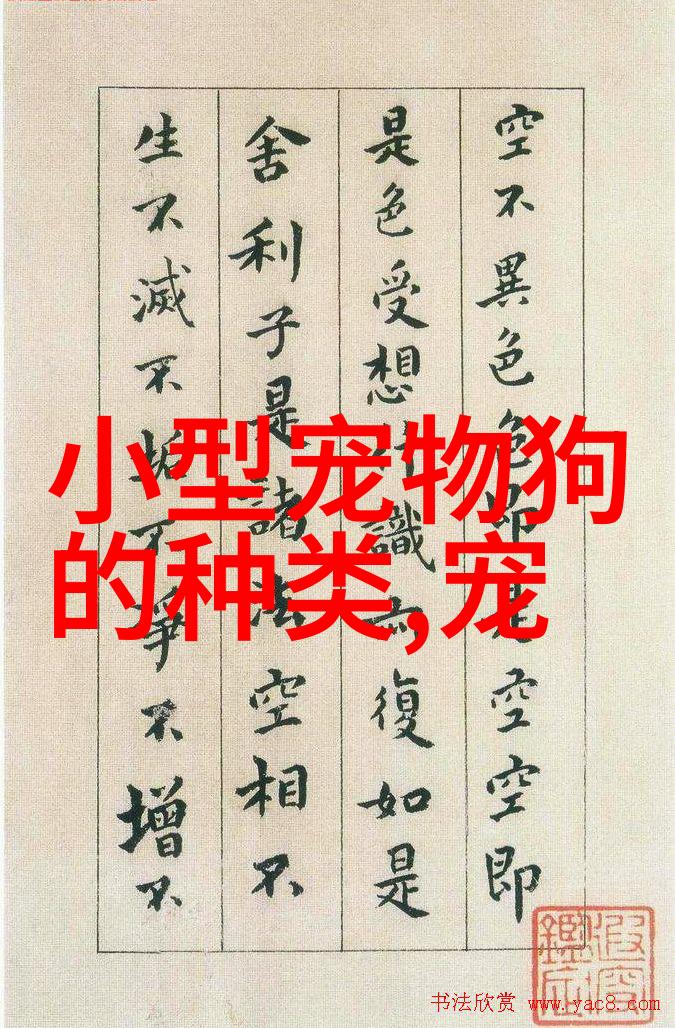 空不異色色即是空空即
是色受想行識亦復如是
舍利子是諸法空相不
生不滅不垢不淨不增不
小型宠物狗
的种类,宠
书法欣赏 www.yac8.com